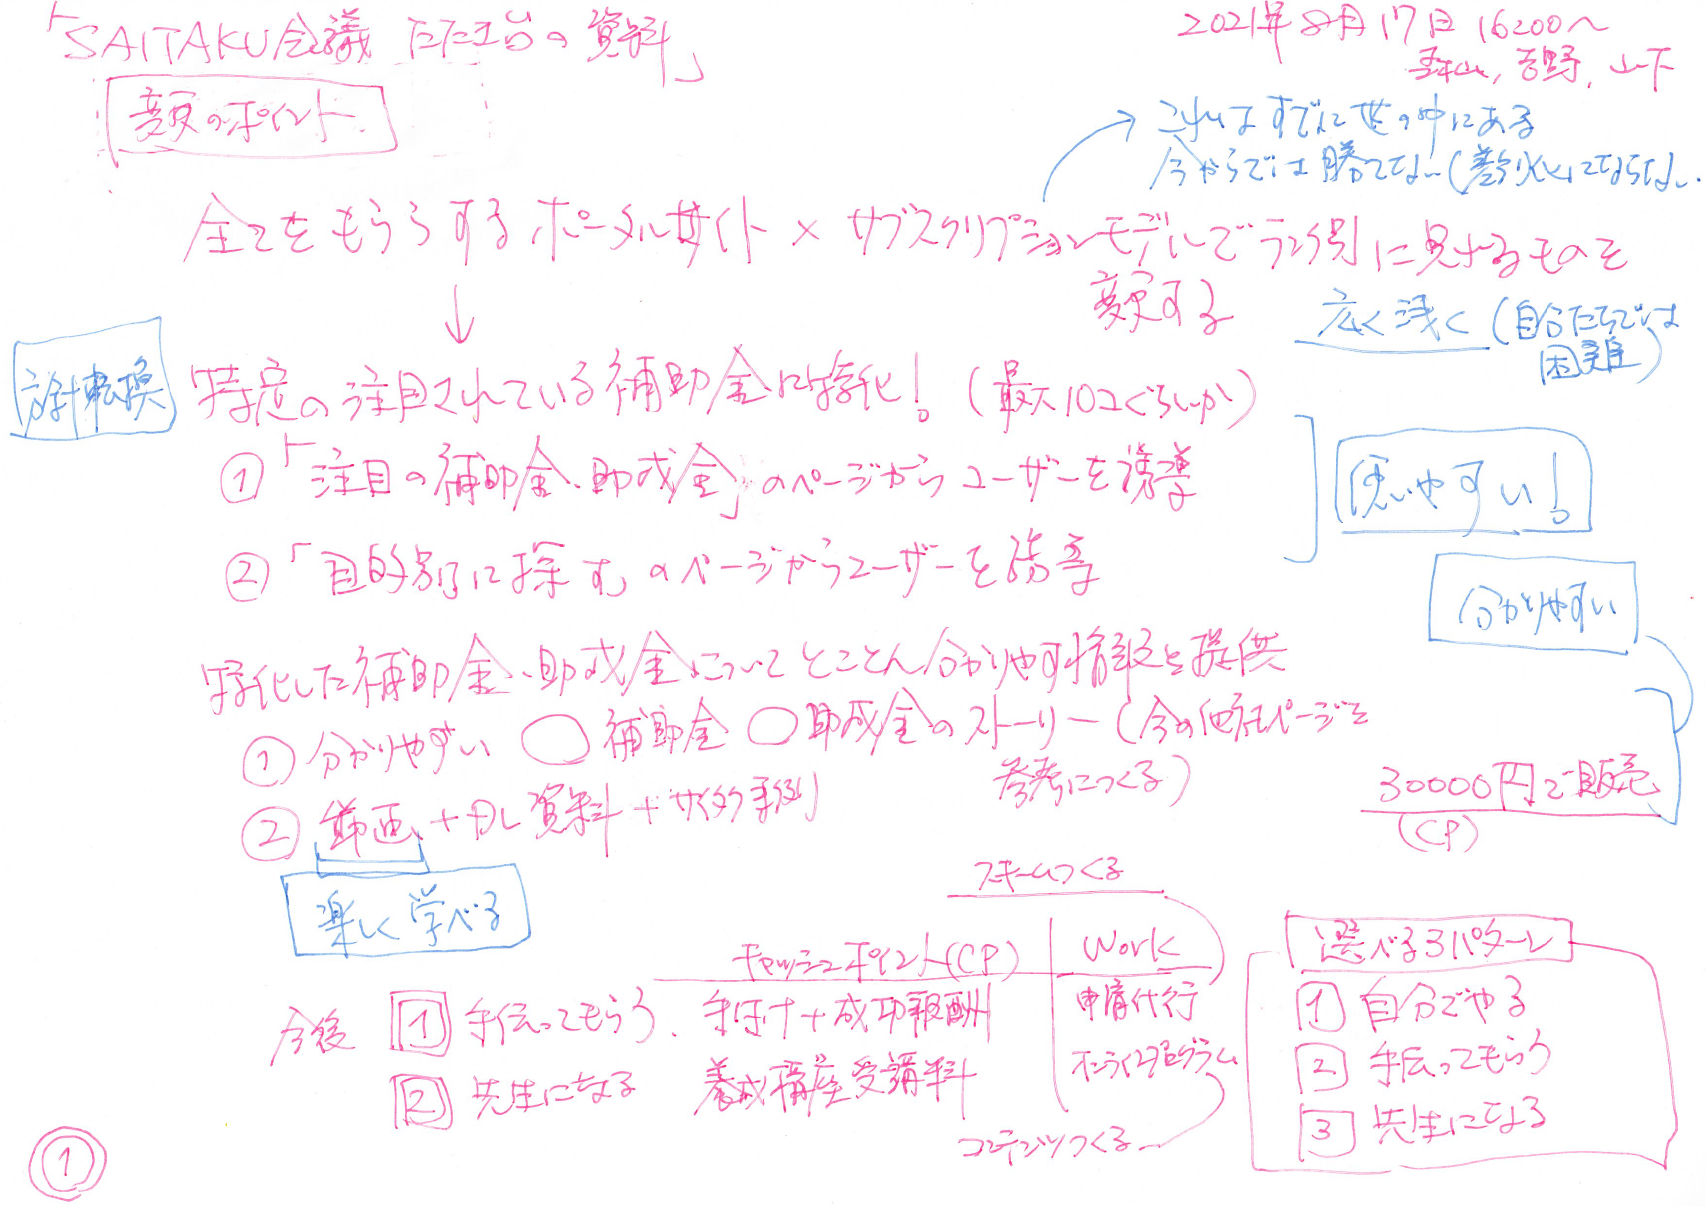 「SAITAKU会議 たたき台の資料」
2021年8月17日 16:00〜
森山, 吉野, 山下
変更のポイント
→ これはすでに世の中にある
今からでは勝てない(差別化にならない
全てをもうらするポータルサイト × サブスクリプションモデルでランク別に見せるものを
変更する
広く浅く(自分たちでは
困難)
↓
方針転換
特定の注目されている補助金に特化!(最大10コぐらいか)
①「注目の補助金・助成金」のページからユーザーを誘導
②「目的別に探す」のページからユーザーを誘導
使いやすい!
分かりやすい
特化した補助金・助成金についてとことん分かりやす情報を提供
① 分かりやすい ◯補助金 ◯助成金のストーリー(今の他社ページを
参考につくる)
② 動画 + DL資料 + サイタク事例
30000円で販売
(CP)
楽しく学べる
スキームつくる
キャッシュポイント(CP) Work
今後 1 手伝ってもらう、 手付け+成功報酬 申請代行
2 先生になる 養成講座受講料 オンラインプログラム
コンテンツつくる
選べる3パターン
1 自分でやる
2 手伝ってもらう
3 先生になる
①